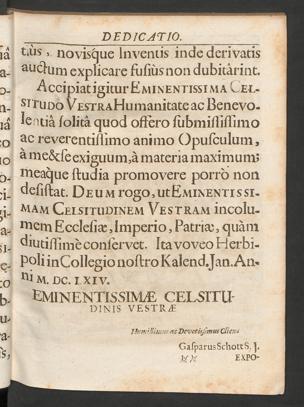 DEDICATIO.
tiùs, novisque Inventis inde derivatis
auctum explicare fusiùs non dubitârint.
Accipiat igitur EMINENTISSIMA CEL-
SITUDO VESTRA Humanitate ac Benevo-
lentiâ solitâ quod offero submississimo
ac reverentissimo animo Opusculum,
à me & se exiguum, à materia maximum;
meaque studia promovere porrò non
desistat. DEUM rogo, ut EMINENTISSI-
MAM CELSITUDINEM VESTRAM incolu-
mem Ecclesiæ, Imperio, Patriæ, quàm
diutissimè conservet. Ita voveo Herbi-
poli in Collegio nostro Kalend. Jan. An-
ni M. DC. LXIV.
EMINENTISSIMÆ CELSITU-
DINIS VESTRÆ
Humillimus ac Devotissimus Cliens
Gasparus Schott S. J.
EXPO-